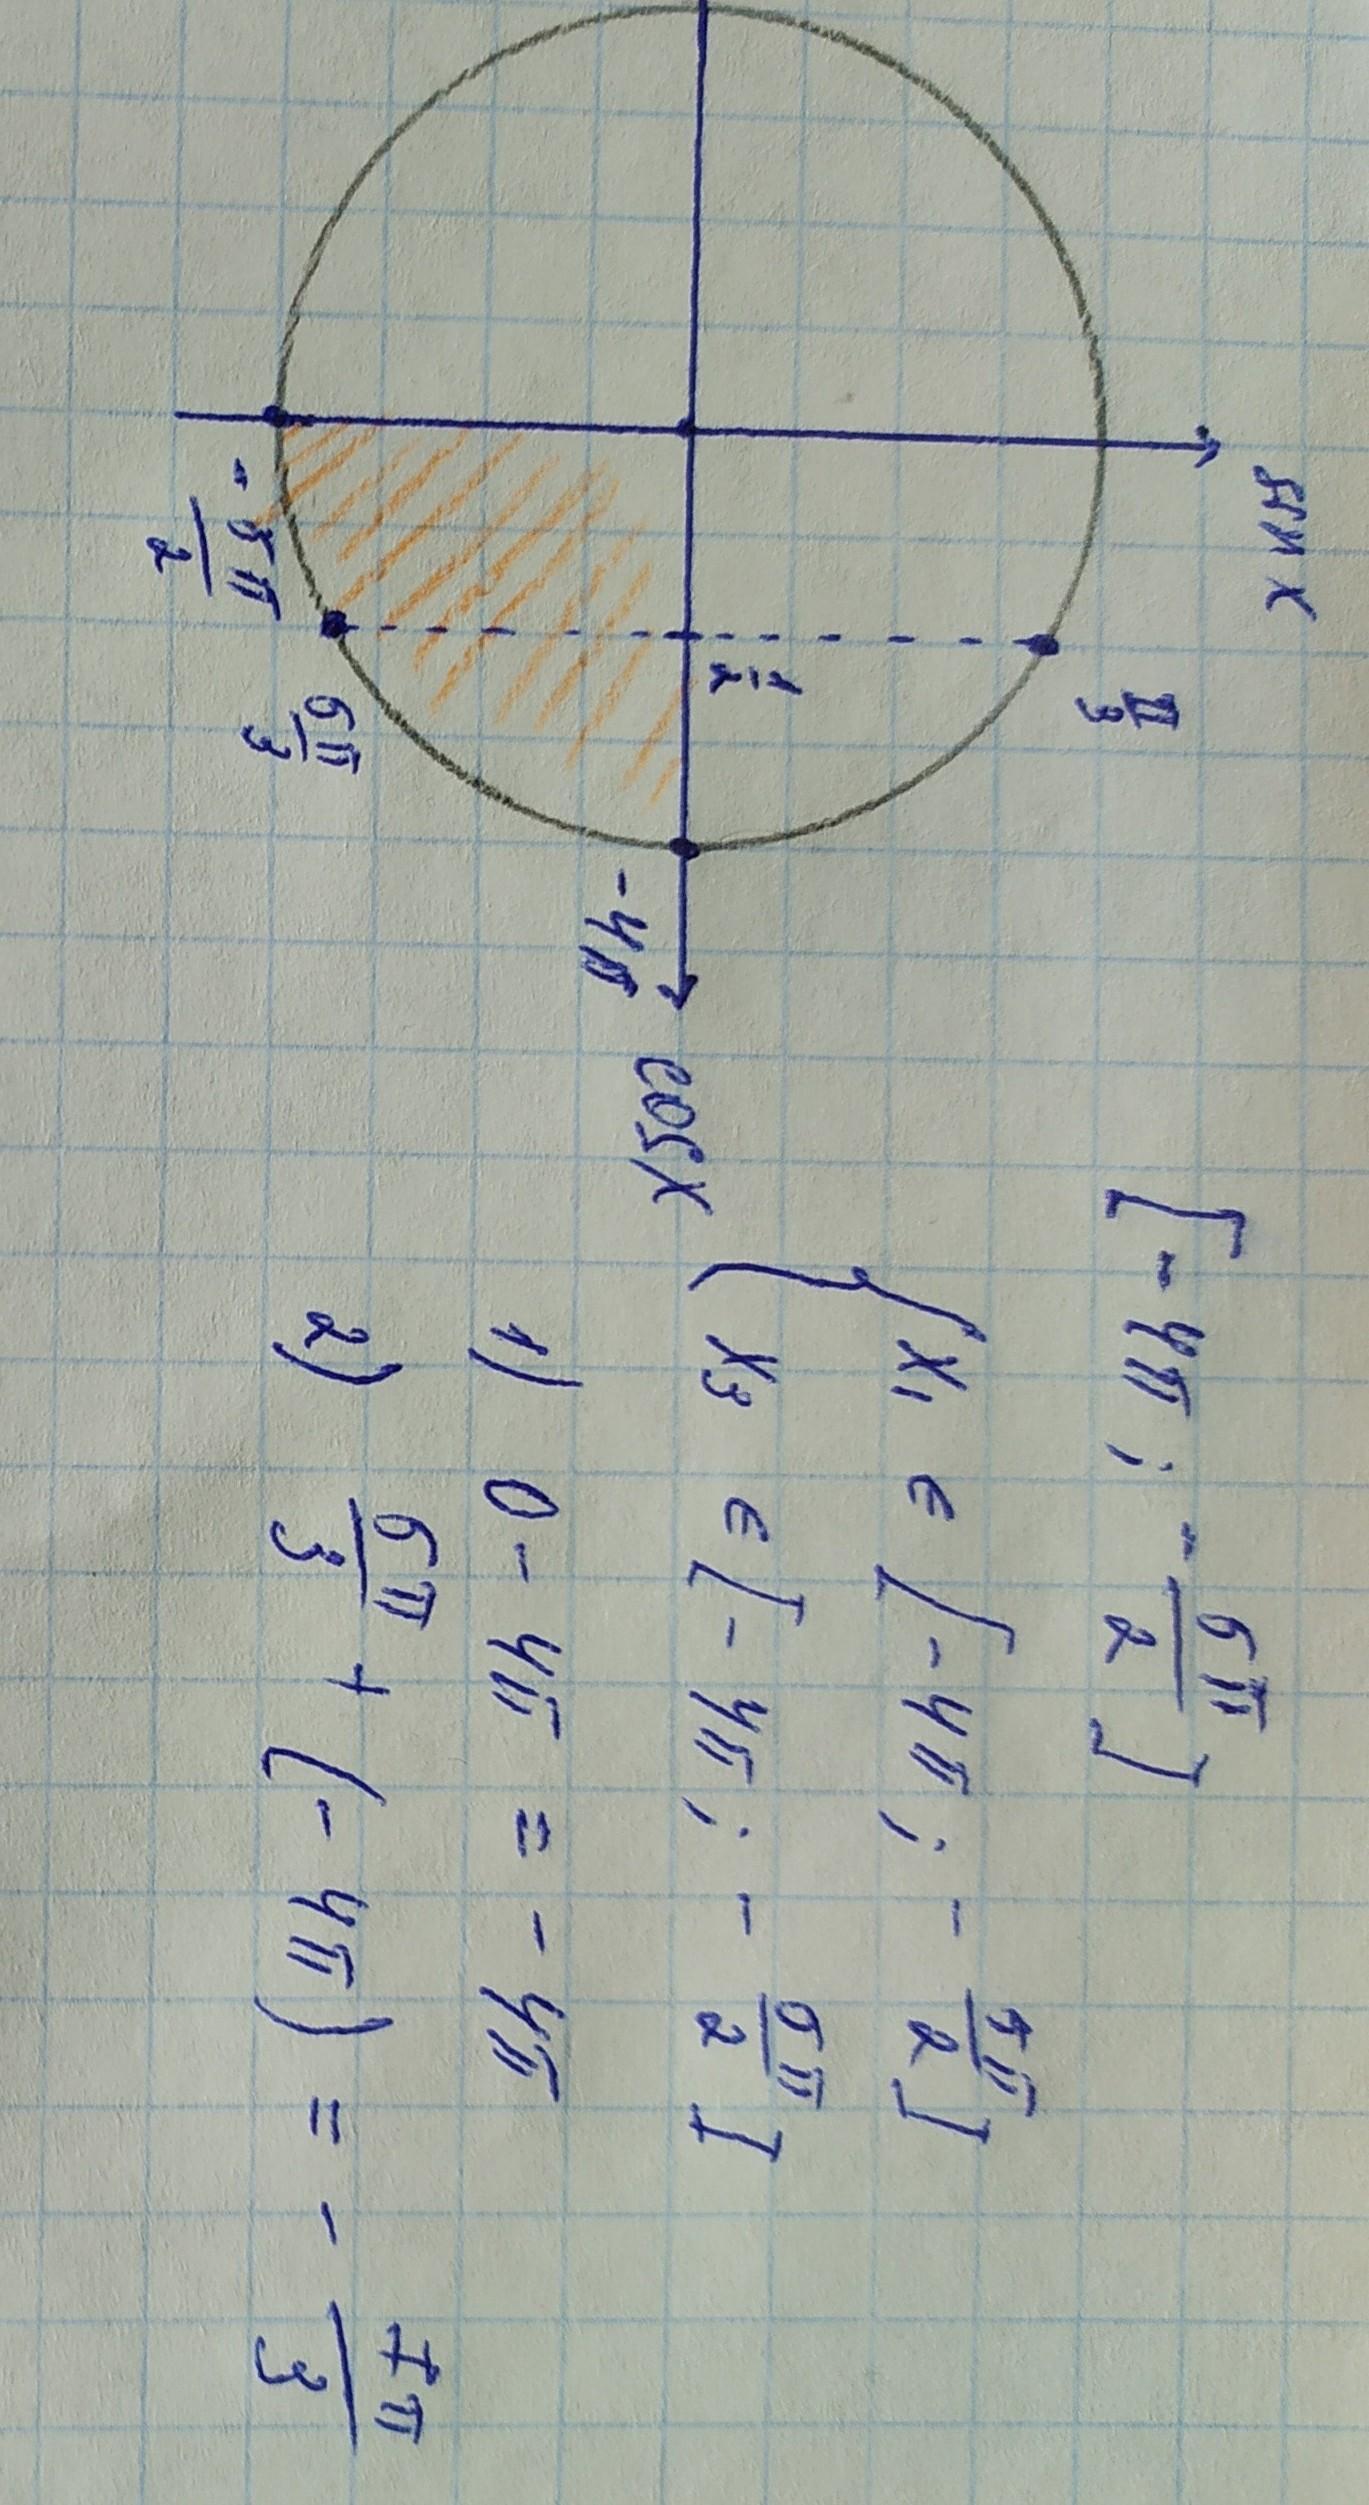 sin x
π/3
1/2
-4π
cos x
5π/3
-5π/2
[-4π; -5π/2]
{ x₁ ∈ [-4π; -5π/2]
x₃ ∈ [-4π; -5π/2]
1) 0 - 4π = -4π
2) 5π/3 + (-4π) = -7π/3